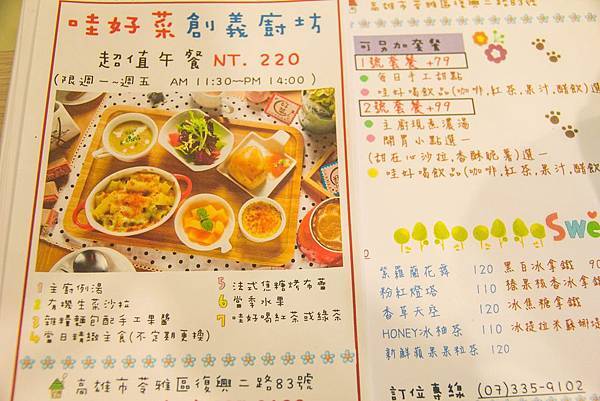 哇好菜創義廚坊
超值午餐 NT. 220
(限週一~週五 AM 11:30~PM 14:00)
1 主廚例湯
2 有機生菜沙拉
3 雜糧麵包配手工果醬
4 當日精緻主食(不定期更換)
5 法式焦糖烤布蕾
6 當季水果
7 哇好喝紅茶或綠茶
高雄市苓雅區復興二路83號
高雄市苓雅區復興二路83號
可另加套餐
1號套餐 +79
每日手工甜點
哇好喝飲品(咖啡,紅茶,果汁,醋飲)選
2號套餐 +99
主廚現煮濃湯
開胃小點選一
(甜在心沙拉,香酥脆薯)選一
哇好喝飲品(咖啡,紅茶,果汁,醋飲
Swe
紫羅蘭花舞 120
粉紅燈塔 110
香草天座 120
HONEY冰柚茶 110
新鮮蘋果果粒茶 120
黑白冰拿鐵 90
榛果核香冰拿鐵
冰焦糖拿鐵
冰提拉米蘇
訂位專線 (07)335-9102